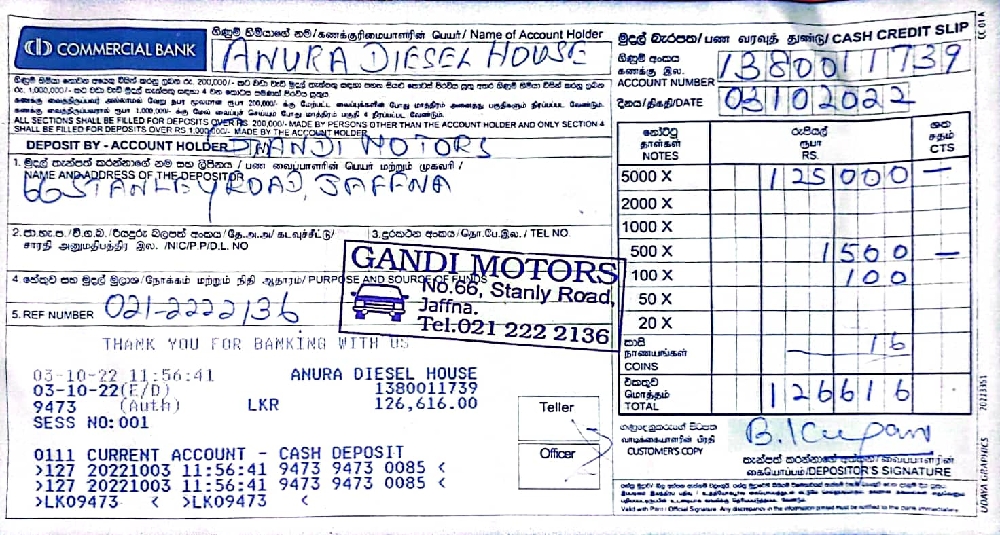 COMMERCIAL BANK
ගිණුම් හිමියාගේ නම/கணக்குரிமையாளரின் பெயர்/ Name of Account Holder
ANURA DIESEL HOUSE
මුදල් බැරපත/பண வரவுத் துண்டு/CASH CREDIT SLIP
CC 01 A
ගිණුම් අංකය
கணக்கு இல.
ACCOUNT NUMBER
1380011739
දිනය/திகதி/DATE
03102022
ALL SECTIONS SHALL BE FILLED FOR DEPOSITS OVER RS 200,000/- MADE BY PERSONS OTHER THAN THE ACCOUNT HOLDER AND ONLY SECTION 4
SHALL BE FILLED FOR DEPOSITS OVER RS 1,000,000/- MADE BY THE ACCOUNT HOLDER
DEPOSIT BY - ACCOUNT HOLDER
GANDI MOTORS
1. මුදල් තැන්පත් කරන්නාගේ නම සහ ලිපිනය / பண வைப்பாளரின் பெயர் மற்றும் முகவரி /
NAME AND ADDRESS OF THE DEPOSITOR
66 STANLEY ROAD, JAFFNA
சாரதி அனுமதிபத்திர இல. /NIC/P.P/D.L. NO
3. දුරකථන අංකය/தொ.பே.இல./ TEL NO.
4 හේතුව සහ මුදල් මූලාශ්‍ර/நோக்கம் மற்றும் நிதி ஆதாரம்/ PURPOSE AND SOURCE OF FUNDS
5. REF NUMBER
021-2222136
GANDI MOTORS
No.66, Stanly Road,
Jaffna.
Tel:021 222 2136
THANK YOU FOR BANKING WITH US
03-10-22 11:56:41 ANURA DIESEL HOUSE
03-10-22(E/D) 1380011739
9473 (Auth) LKR 126,616.00
SESS NO:001
0111 CURRENT ACCOUNT - CASH DEPOSIT
>127 20221003 11:56:41 9473 9473 0085 <
>127 20221003 11:56:41 9473 9473 0085 <
>LK09473 < >LK09473 <
Teller
Officer
නෝට්ටු
தாள்கள்
NOTES
රුපියල්
ரூபா
RS.
ශත
சதம்
CTS
5000 X 125000 —
2000 X
1000 X
500 X 1500 —
100 X 100
50 X
20 X
කාසි
நாணயங்கள்
COINS
16
එකතුව
மொத்தம்
TOTAL
126616
வாடிக்கையாளரின் பிரதி
CUSTOMER'S COPY
கையொப்பம்/DEPOSITOR'S SIGNATURE
UDAYA GRAPHICS